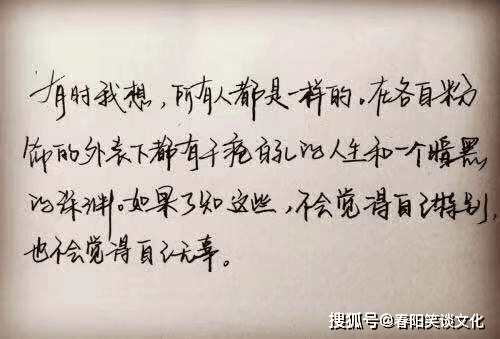 有时我想，所有人都是一样的。在各自粉
饰的外表下都有千疮百孔的人生和一个暗黑
的深渊。如果了知这些，不会觉得自己特别，
也不会觉得自己无辜。
搜狐号@春阳笑谈文化